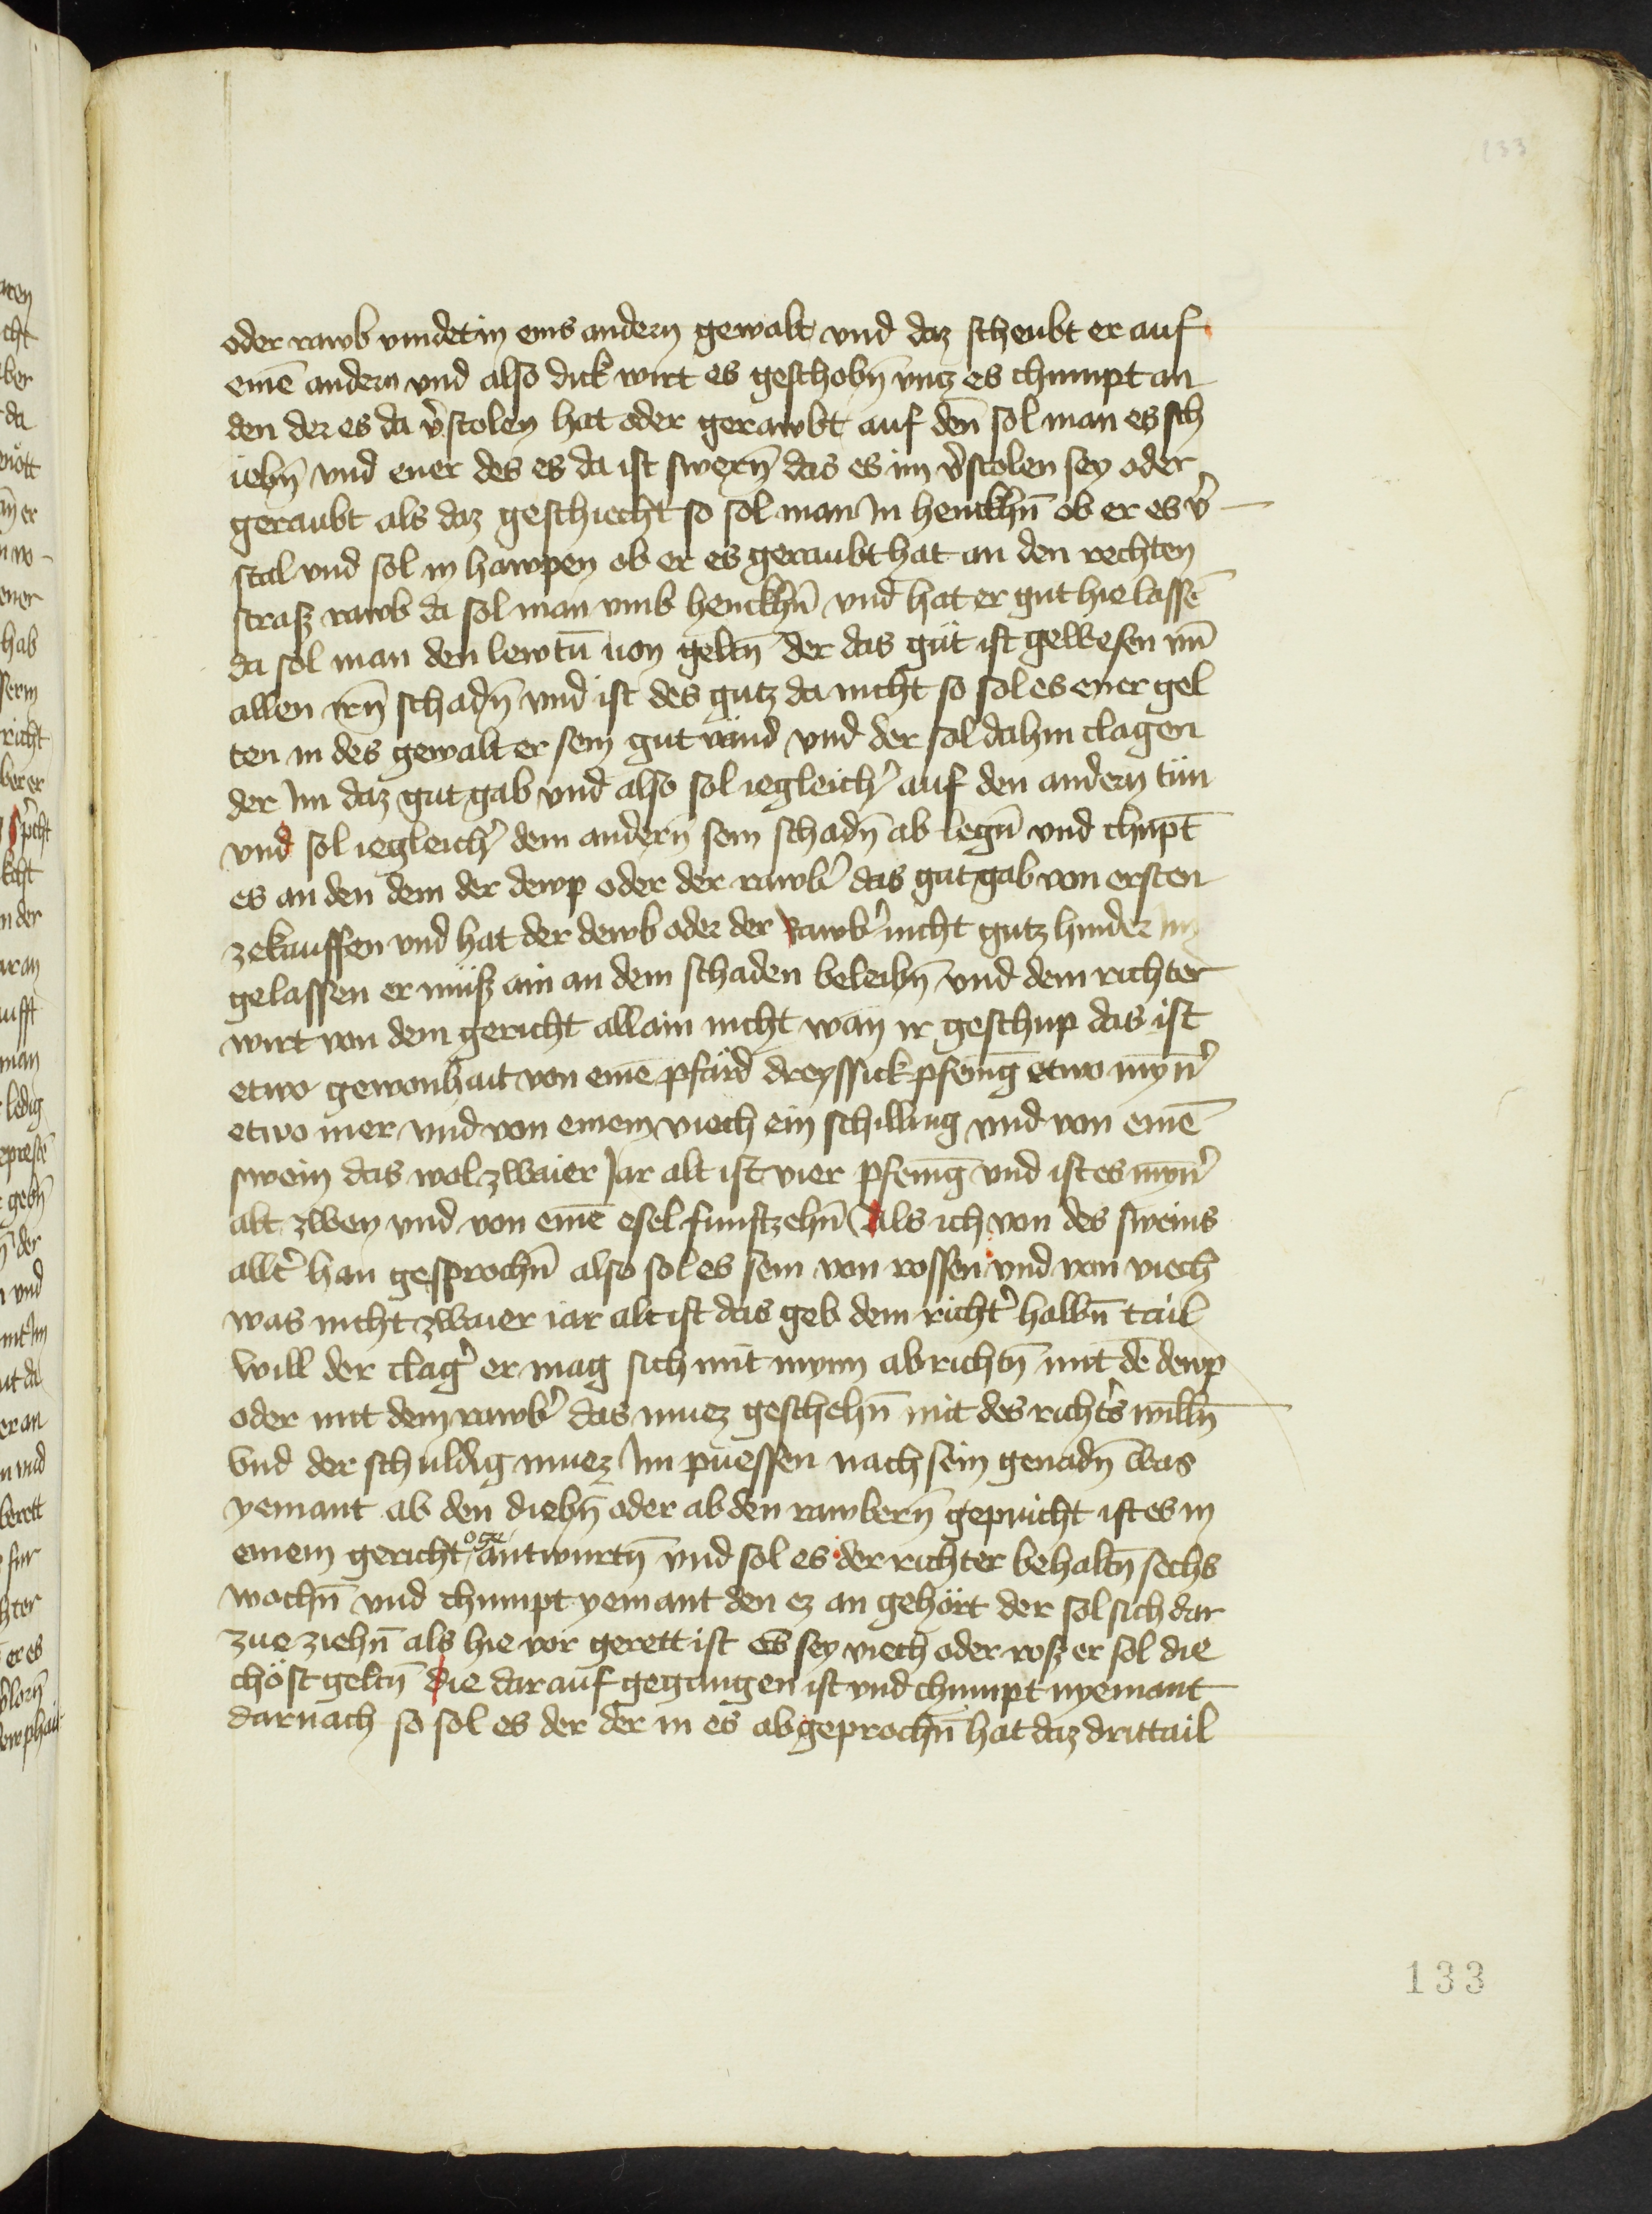 133
oder rawb vindet in eins andern gewalt vnd daz scheubt er auf
einē andern vnd also dick wirt es geschobn̄ vntz es chumpt an
den der es da v̓stolen hat oder gerawbt auf den̄ sol man es sch
iebn̄ vnd ener des es da ist swern̄ das es im v̓stolen sey oder
geraubt als daz geschiecht so sol man in henckhn̄ ob er es v̓
stal vnd sol in hawpen ob er es geraubt hat an den rechten
strasz rawb da sol man vmb henckhn̄ vnd hat er gut hie lassē
da sol man den lewtn̄ uon geltn̄ der das gůt ist gewesen vn̄
allen irn̄ schadn̄ vnd ist des gutz da nicht so sol es ener gel
ten in des gewalt er sein gut vand vnd der sol dahin clagen
der im daz gut gab vnd also sol iegleich̓ auf den andern tůn
vnd sol iegleich̓ dem andern̄ sein schadn̄ ab legn̄ vnd chupt̄
es an den dem der dewp oder der rawb̓ das gut gab von ersten
zekauffen vnd hat der dewb oder der rawb̓ nicht gutz hinder im
gelassen er můsz ain an dem schaden beleibn̄ vnd dem richter
wirt von dem gericht allain nicht wan ir geschup das ist
etwo gewonhait von einē pfärd dreyssick pfenīg etwo myn̄̓
etwo mer vnd von einem viech ein schilling vnd von einē
swein das wol zwaier Jar alt ist vier pfenīg vnd ist es myn̄̓
alt zwen vnd von einē esel funftzehn̄ Als ich von des sweins
allt̓ han gesprochn̄ also sol es sein von rossen vnd von viech
was nicht zwaier iar alt ist das geb dem richt̓ halbn̄ tail
will der clag̓ er mag sich mit mynn abrichtn̄ mit dē dewp
oder mit dem rawb̓ das muez geschehn̄ mit des richt̓s willn̄
vnd der schuldig muez im puessen nach sein genadn̄ was
yemant ab den diebn̄ oder ab den rawbern̄ gepricht ist es in
einem gericht er antwurtn̄ vnd sol es der richter behaltn̄ sechs
wochn̄ vnd chumpt yemant den ez an gehört der sol sich dar
zue ziehn̄ als hie vor gerett ist es sey viech oder rosz er sol die
chöst geltn̄ die darauf gegangen ist vnd chumpt nyemant
darnach so sol es der der in es abgeprochn̄ hat daz drittail
133